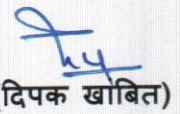 दिपक खांबित)